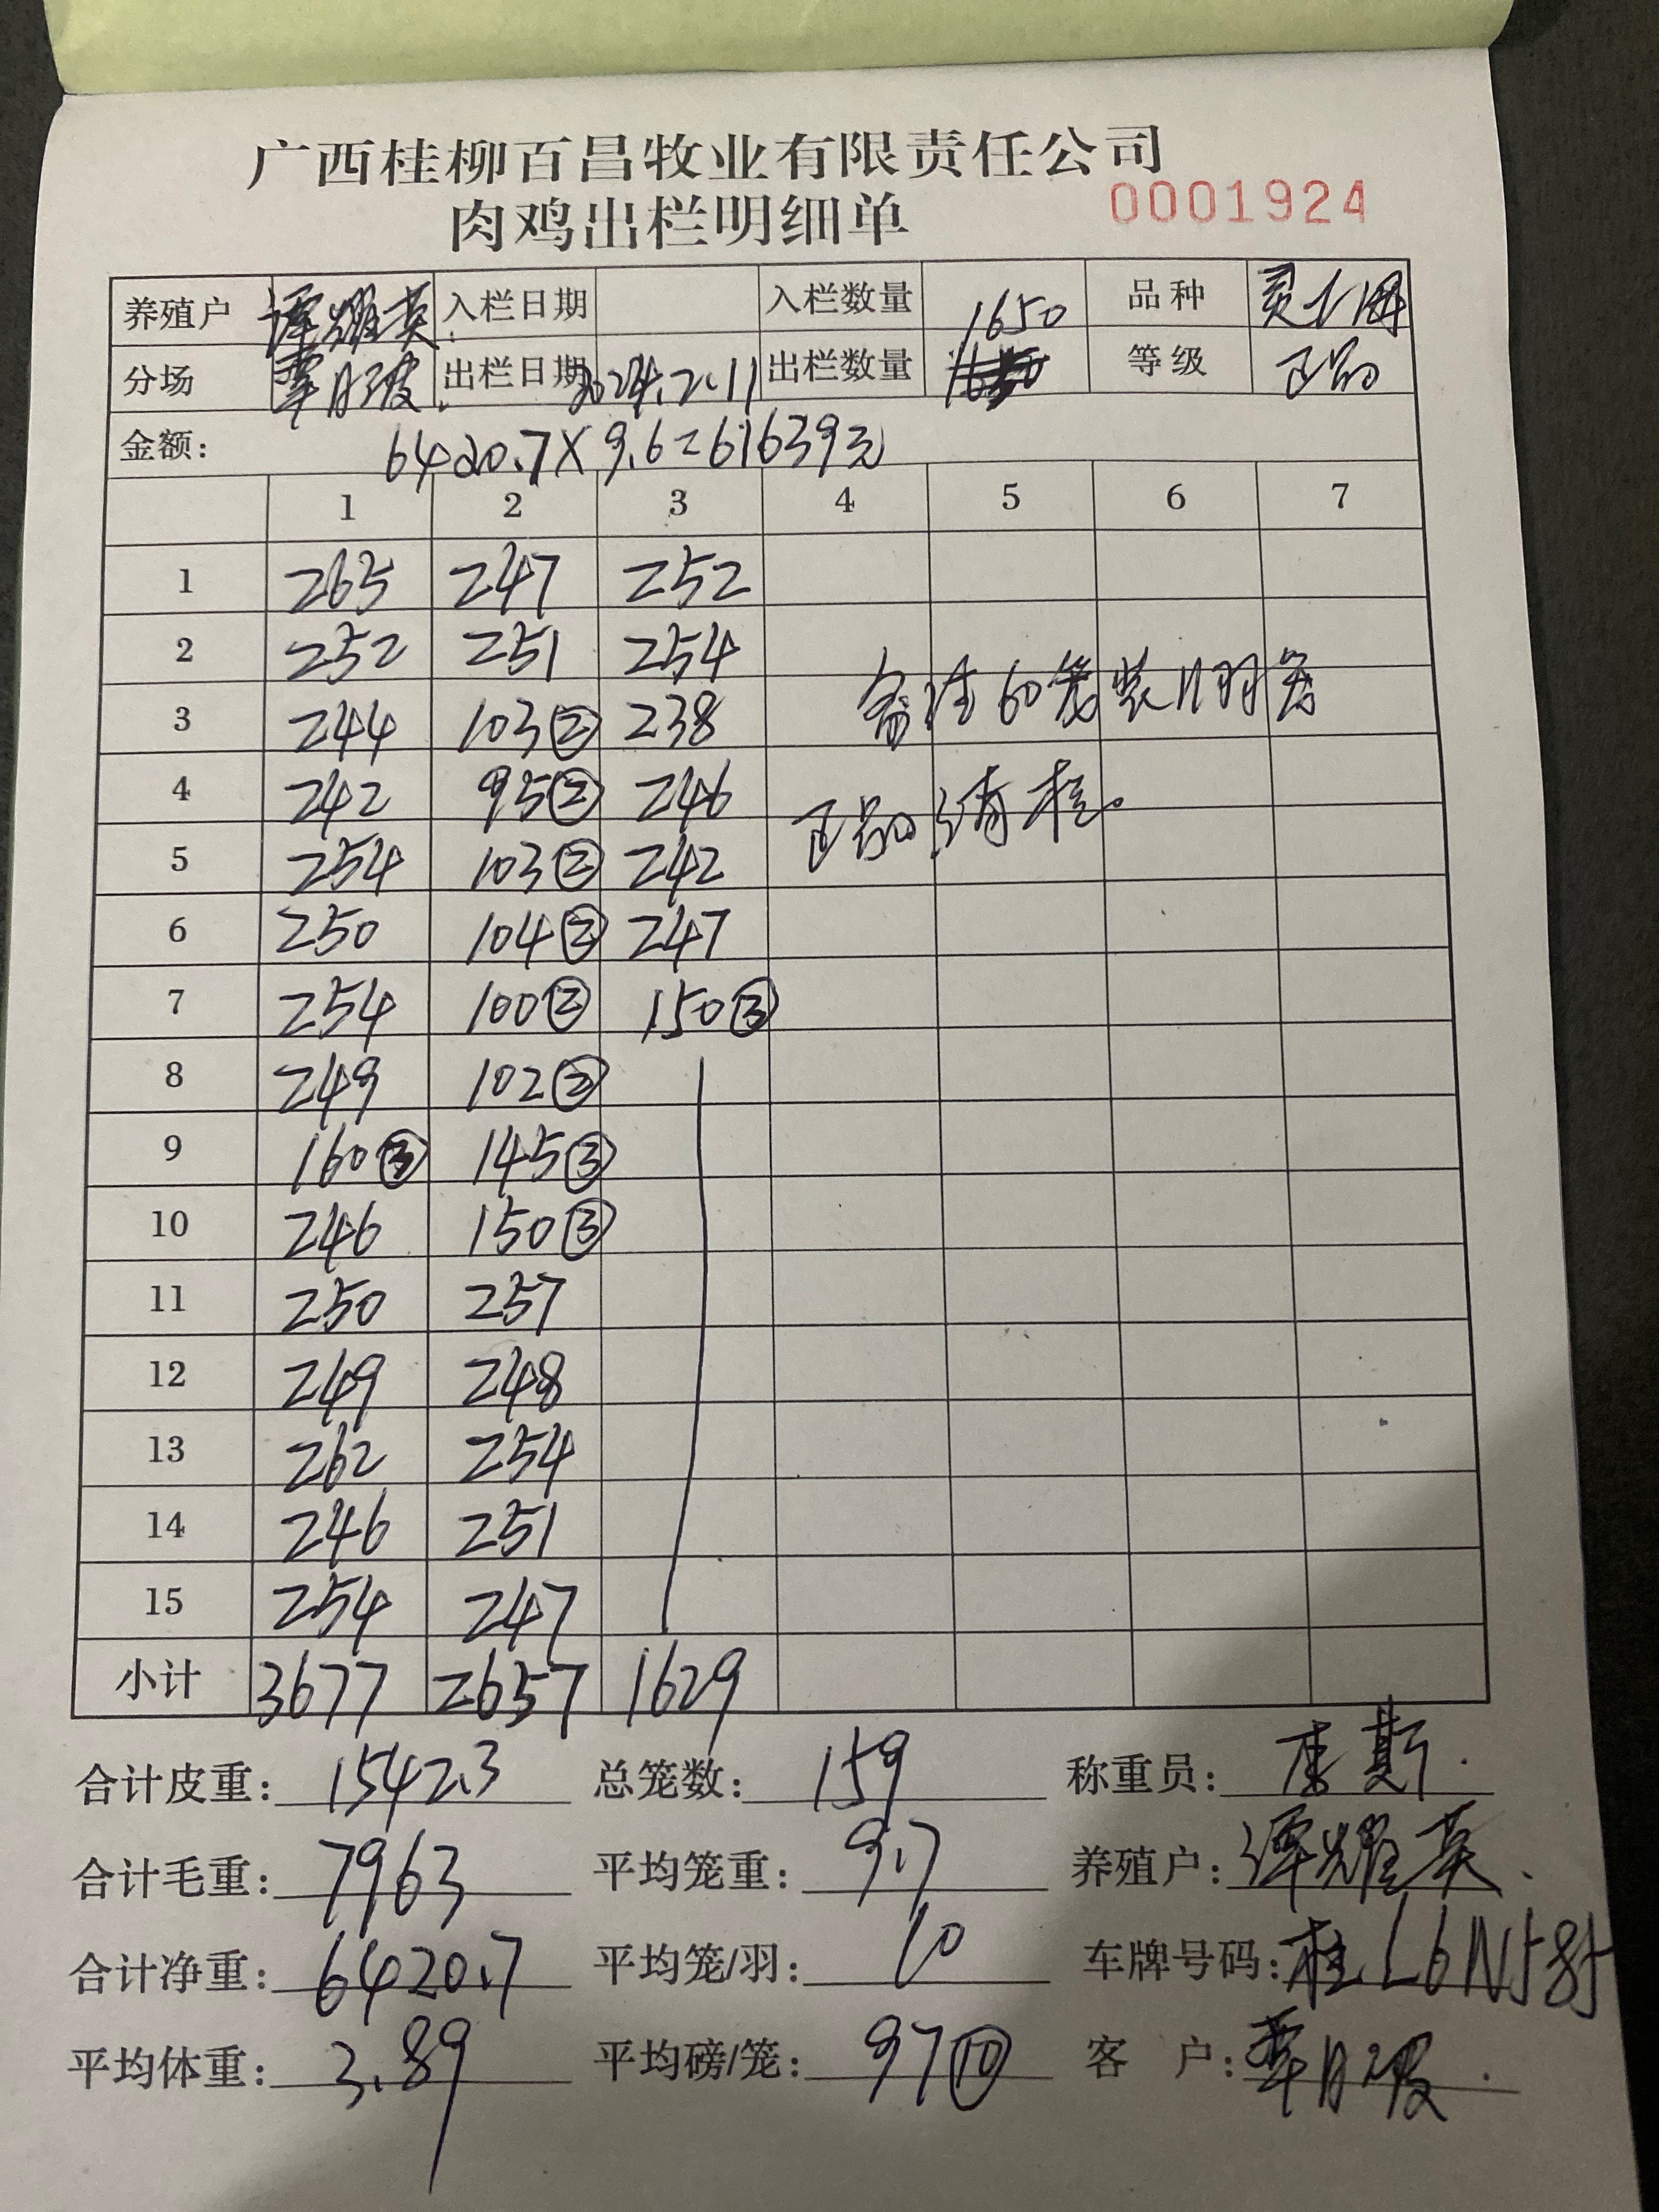 广西桂柳百昌牧业有限责任公司
肉鸡出栏明细单 0001924
养殖户 谭耀英 入栏日期 入栏数量 1650 品种
分场 覃月波 出栏日期 2024.2.11 出栏数量 等级 正品
金额: 6420.7×9.6=61639元
1 2 3 4 5 6 7
1 265 247 252
2 252 251 254
3 244 103② 238
备注60笼装11羽笼
4 242 95② 246
正品清栏。
5 254 103② 242
6 250 104② 247
7 254 100② 150③
8 249 102②
9 160③ 145③
10 246 150③
11 250 257
12 249 248
13 262 254
14 246 251
15 254 247
小计 3677 2657 1629
合计皮重: 1542.3 总笼数: 159 称重员:
合计毛重: 7963 平均笼重: 9.7 养殖户: 谭耀英
合计净重: 6420.7 平均笼/羽: 10 车牌号码: 桂L6N585
平均体重: 3.89 平均磅/笼: 97⑩ 客 户: 覃月波